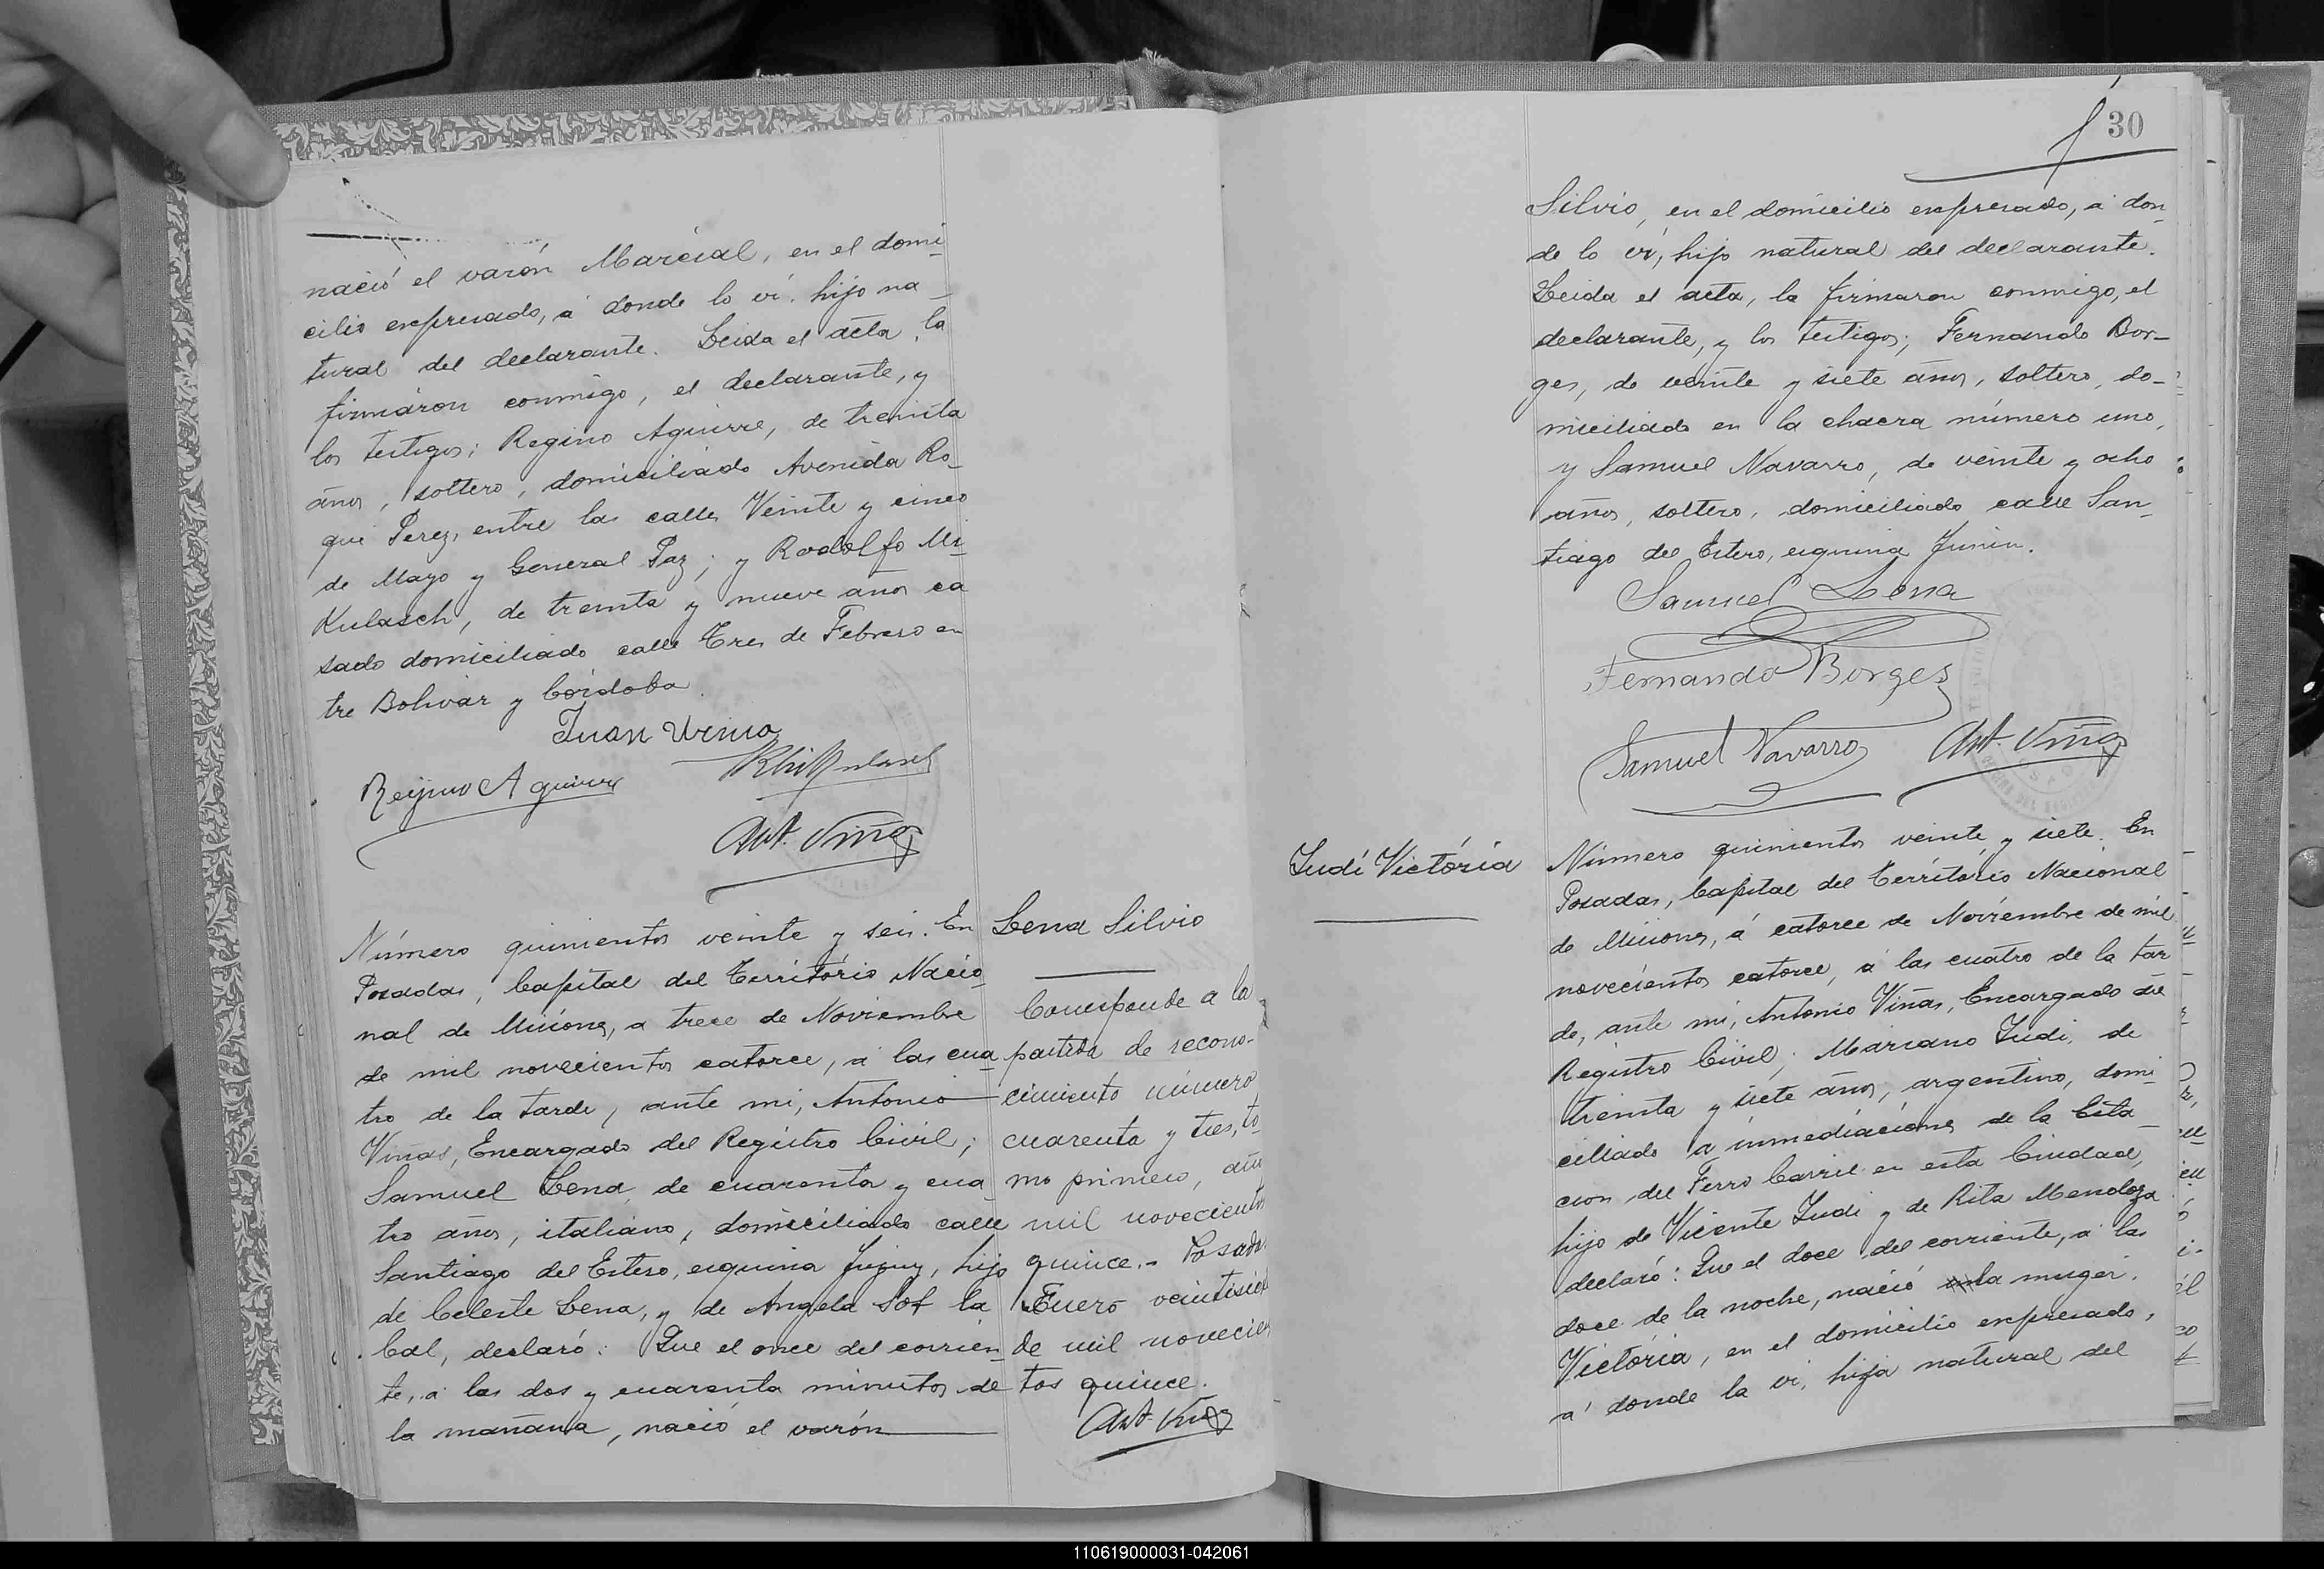 nació el varón Marcial, en el domi-
cilio expresado, á donde lo ví, hijo na-
tural del declarante. Leida el acta, la
firmáron conmigo, el declarante, y
los testigos; Regino Aguirre, de treinta
años, soltero, domiciliado Avenida Ro-
que Perez, entre las calles Veinte y cinco
de Mayo y General Paz; y Rodolfo Mi-
Kulasch, de treinta y nueve años ca
sado domiciliado calle Tres de Febrero en
tre Bolivar y Córdoba.
Juan
Regino Aguirre
Ant. Viñas
Número quinientos veinte y seis. En
Posadas, Capital del Território Nacio-
nal de Misiones, a trece de Noviembre
de mil novecientos catorce, á las cua-
tro de la tarde, ante mi, Antonio
Viñas, Encargado del Registro Civil;
Samuel Lena, de cuarenta y cua-
tro años, italiano, domiciliado calle
Santiago del Estero, esquina Jujuy, hijo
de Celeste Lena, y de Angela Sof la
Cal, declaró: Que el once del corrien-
te, á las dos y cuarenta minutos de
la mañana, nació el varón
Lena Silvio
Corresponde a la
partida de recono-
cimiento número
cuarenta y tres, to-
mo primero, año
mil novecientos
quince.- Posadas
Enero veintisiete
de mil novecien
tos quince.
Ant. Viñas
30
Silvio, en el domicilio expresado, á don-
de lo ví, hijo natural del declarante.
Leida el acta, la firmaron conmigo, el
declarante, y los testigos; Fernando Bor-
ges, de veinte y siete años, soltero, do-
miciliado en la chacra número uno,
y Samuel Navarro, de veinte y ocho
años, soltero, domiciliado calle San-
tiago del Estero, esquina Junin.
Samuel Lena
Fernando Borges
Samuel Navarro Ant. Viñas
Judi Victória
Número quinientos veinte y siete. En
Posadas, Capital del Território Nacional
de Misiones, á catorce de Noviembre de mil
novecientos catorce, á las cuatro de la tar
de, ante mi, Antonio Viñas, Encargado del
Registro Civil; Mariano Judi, de
treinta y siete años, argentino, domi-
ciliado a inmediaciones de la Esta-
cion del Ferro Carril en esta Ciudad,
hijo de Vicente Judi y de Rita Mendoza
declaró: Que el doce del corriente, á las
doce de la noche, nació la muger.
Victória, en el domicilio expresado,
á donde la ví, hija natural del
110619000031-042061